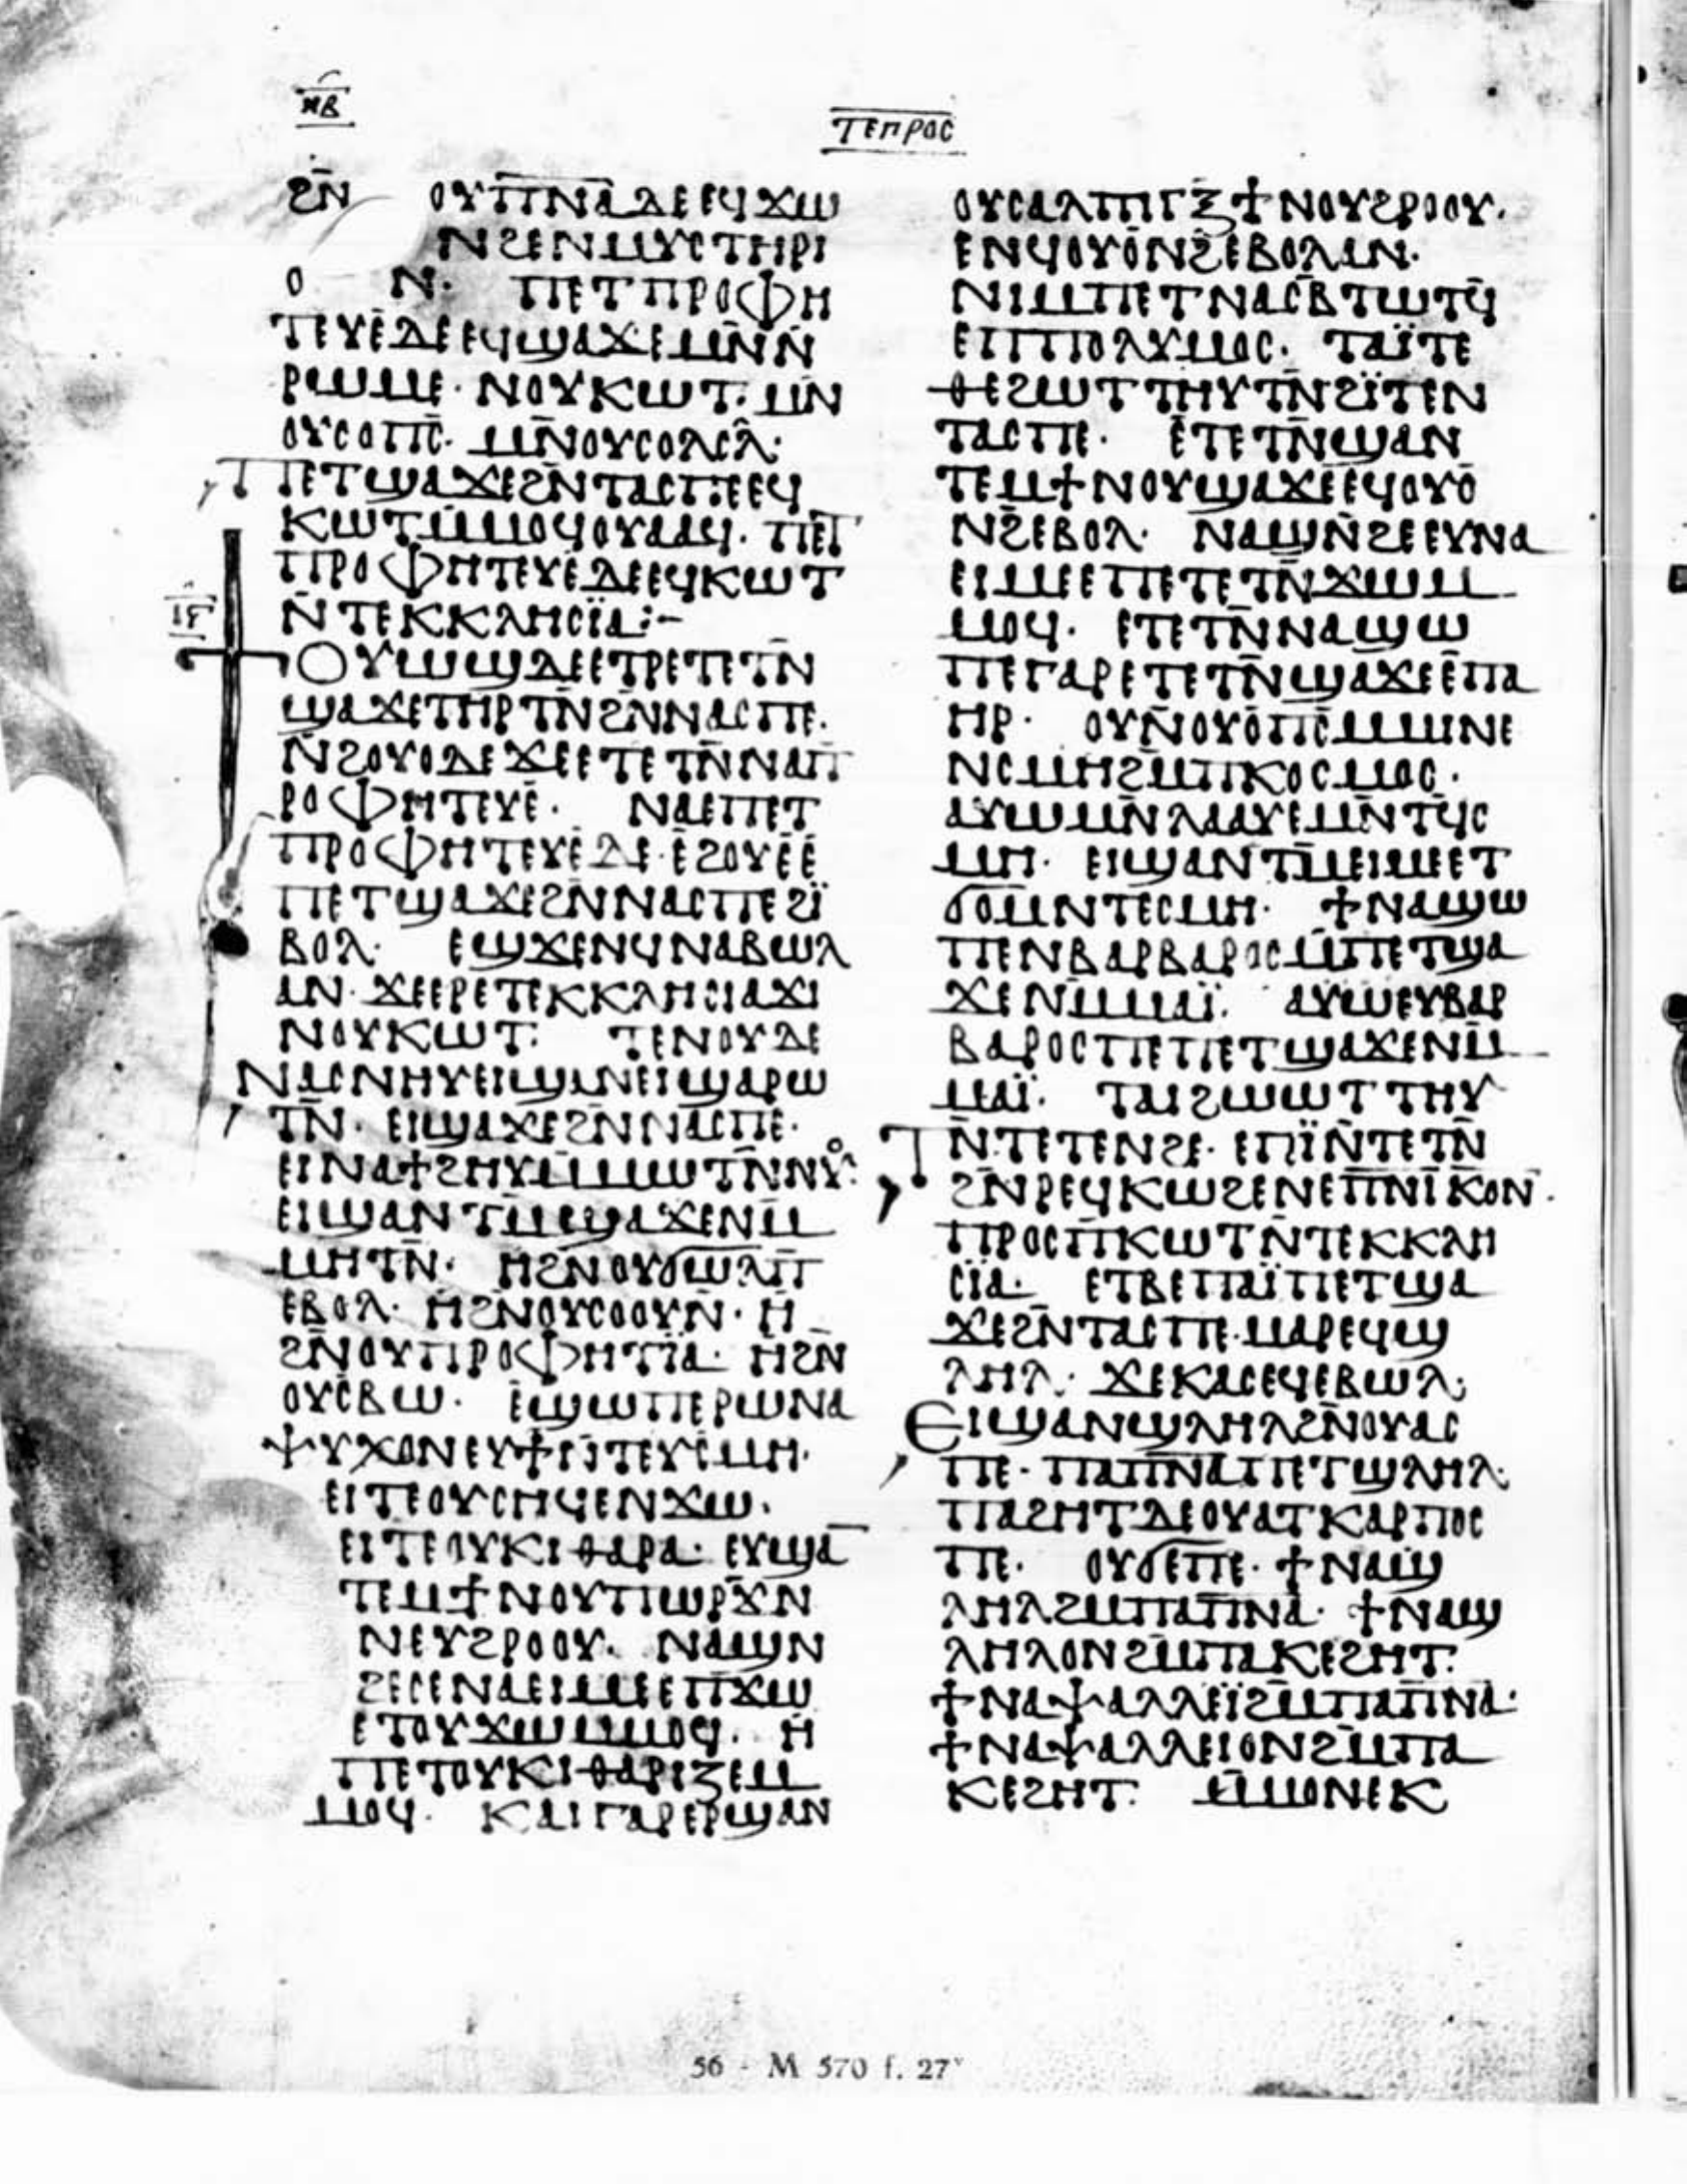 ⲛⲃ
ⲧⲉⲡⲣⲟⲥ
ϩⲛ̄ ⲟⲩⲡ̅ⲛ̅ⲁ̅ ⲇⲉ ⲉϥϫⲱ
ⲛϩⲉⲛⲙⲩⲥⲧⲏⲣⲓ
ⲟ ⲛ· ⲡⲉⲧⲡⲣⲟⲫⲏ
ⲧⲉⲩⲉ̇ ⲇⲉ ⲉϥϣⲁϫⲉ ⲙⲛ̄ⲛ̄
ⲣⲱⲙⲉ· ⲛⲟⲩⲕⲱⲧ· ⲙⲛ̄
ⲟⲩⲥⲟⲡⲥ̄· ⲙⲛ̄ⲟⲩⲥⲟⲗⲥⲗ̄·
ⲡⲉⲧϣⲁϫⲉϩⲛ̄ⲧⲁⲥⲡⲉ ⲉϥ
ⲕⲱⲧ ⲙ̄ⲙⲟϥⲟⲩⲁⲁϥ· ⲡⲉⲧ
ⲡⲣⲟⲫⲏⲧⲉⲩⲉ̇ ⲇⲉ ⲉϥⲕⲱⲧ
ⲛ̄ⲧⲉⲕⲕⲗⲏⲥⲓ̈ⲁ:–
ⲓⲅ̄
ⲟⲩⲱϣ ⲇⲉ ⲉⲧⲣⲉⲧⲉⲧⲛ̄
ϣⲁϫⲉⲧⲏⲣⲧⲛ̄ϩⲛ̄ⲛⲁⲥⲡⲉ·
ⲛ̄ϩⲟⲩⲟ ⲇⲉ ϫⲉ ⲉⲧⲉⲧⲛ̄ⲛⲁⲡ
ⲣⲟⲫⲏⲧⲉⲩⲉ̇· ⲛⲁⲉⲡⲉⲧ
ⲡⲣⲟⲫⲏⲧⲉⲩⲉ̇ ⲇⲉ· ⲉ̇ϩⲟⲩⲉ̇ⲉ̇
ⲡⲉⲧϣⲁϫⲉϩⲛ̄ⲛⲁⲥⲡⲉϩⲓ̈
ⲃⲟⲗ· ⲉϣϫⲉⲛϥⲛⲁⲃⲱⲗ
ⲁⲛ· ϫⲉⲉⲣⲉⲧⲉⲕⲕⲗⲏⲥⲓⲁϫⲓ
ⲛⲟⲩⲕⲱⲧ· ⲧⲉⲛⲟⲩ ⲇⲉ
ⲛⲁⲥⲛⲏⲩⲉⲓϣⲁⲛⲉⲓϣⲁⲣⲱ
ⲧⲛ̄· ⲉⲓϣⲁϫⲉϩⲛ̄ⲛⲁⲥⲡⲉ·
ⲉⲓⲛⲁϯϩⲏⲩⲙ̄ⲙⲱⲧⲛ̄ⲛⲟⲩ·
ⲉⲓϣⲁⲛⲧⲙ̄ϣⲁϫⲉⲛⲙ̄
ⲙⲏⲧⲛ̄· ⲏϩⲛ̄ⲟⲩϭⲱⲗⲡ̄
ⲉⲃⲟⲗ· ⲏ̇ϩⲛ̄ⲟⲩⲥⲟⲟⲩⲛ̄· ⲏ̇
ϩⲛ̄ⲟⲩⲡⲣⲟⲫⲏⲧⲓ̈ⲁ· ⲏϩⲛ̄
ⲟⲩⲥⲃⲱ· ⲉ̇ϣⲱⲡⲉⲣⲱⲛⲁ
ⲯⲩⲭⲟⲛⲉⲩϯⲛ̄ⲧⲉⲩⲥⲙⲏ·
ⲉⲓⲧⲉⲟⲩⲥⲏϥⲉⲛϫⲱ·
ⲉⲓⲧⲉⲟⲩⲕⲓⲑⲁⲣⲁ· ⲉⲩϣⲁ
ⲧⲉⲙϯⲛⲟⲩⲡⲱⲣϫ̄ⲛ
ⲛⲉⲩϩⲣⲟⲟⲩ· ⲛⲁϣⲛ
ϩⲉⲥⲉⲛⲁⲉⲓⲙⲉⲉⲡϫⲱ
ⲉⲧⲟⲩϫⲱⲙⲙⲟϥ· ⲏ̇
ⲡⲉⲧⲟⲩⲕⲓⲑⲁⲣⲓⲍⲉⲙ
ⲙⲟϥ· ⲕⲁⲓⲅⲁⲣⲉⲣϣⲁⲛ
ⲟⲩⲥⲁⲗⲡⲓⲅⲝ̄ϯⲛⲟⲩϩⲣⲟⲟⲩ·
ⲉⲛϥⲟⲩⲟ̇ⲛϩ̄ⲉⲃⲟⲗⲁⲛ·
ⲛⲓⲙⲡⲉⲧⲛⲁⲥⲃ̄ⲧⲱⲧϥ̄
ⲉⲡⲡⲟⲗⲩⲙⲟⲥ· ⲧⲁⲓ̈ⲧⲉ
ⲑⲉϩⲱⲧⲧⲏⲩⲧⲛ̄ϩⲓ̈ⲧⲉⲛ
ⲧⲁⲥⲡⲉ· ⲉ̇ⲧⲉⲧⲛ̄ϣⲁⲛ
ⲧⲉⲙϯⲛⲟⲩϣⲁϫⲉⲉϥⲟⲩⲟ̇
ⲛϩ̄ⲉⲃⲟⲗ· ⲛⲁϣⲛ̄ϩⲉⲉⲩⲛⲁ
ⲉⲓⲙⲉⲉⲡⲉⲧⲉⲧⲛ̄ϫⲱⲙ
ⲙⲟϥ· ⲉⲧⲉⲧⲛ̄ⲛⲁϣⲱ
ⲡⲉⲅⲁⲣⲉⲧⲉⲧⲛ̄ϣⲁϫⲉⲉ̄ⲡⲁ
ⲏⲣ· ⲟⲩⲛ̄ⲟⲩⲟ̇ⲡⲥ̄ⲙⲙⲓⲛⲉ
ⲛⲥⲙⲏϩⲙ̄ⲡⲕⲟⲥⲙⲟⲥ·
ⲁⲩⲱⲙⲛ̄ⲗⲁⲁⲩⲉ̇ⲙⲛ̄ⲧϥ̄ⲥ
ⲙⲏ· ⲉⲓϣⲁⲛⲧⲙ̄ⲉⲓⲙⲉⲉⲧ
ϭⲟⲙⲛⲧⲉⲥⲙⲏ· ϯⲛⲁϣⲱ
ⲡⲉⲛⲃⲁⲣⲃⲁⲣⲟⲥⲙ̄ⲡⲉⲧϣⲁ
ϫⲉⲛⲙ̄ⲙⲁⲓ̈· ⲁⲩⲱⲉⲩⲃⲁⲣ
ⲃⲁⲣⲟⲥⲡⲉⲡⲉⲧϣⲁϫⲉⲛⲙ̄
ⲙⲁⲓ̈· ⲧⲁⲓϩⲱⲱⲧⲧⲏⲩ
ⲧⲛ̄ⲧⲉⲧⲉⲛϩⲉ· ⲉⲡⲓ̈ⲛ̄ⲧⲉⲧⲛ̄
ϩⲛ̄ⲣⲉϥⲕⲱϩⲉⲛⲉⲡⲛⲓⲕⲟⲛ·
ⲡⲣⲟⲥⲡ̄ⲕⲱⲧⲛ̄ⲧⲉⲕⲕⲗⲏ
ⲥⲓ̈ⲁ· ⲉⲧⲃⲉⲡⲁⲓ̈ⲡⲉⲧϣⲁ
ϫⲉϩⲛ̄ⲧⲁⲥⲡⲉ·ⲙⲁⲣⲉϥϣ
ⲗⲏⲗ· ϫⲉⲕⲁⲥⲉϥⲉⲃⲱⲗ·
ⲉⲓϣⲁⲛϣⲗⲏⲗϩⲛ̄ⲟⲩⲁⲥ
ⲡⲉ· ⲡⲁⲡ̅ⲛ̅ⲁ̅ⲡⲉⲧϣⲗⲏⲗ·
ⲡⲁϩⲏⲧⲇⲉⲟⲩⲁⲧⲕⲁⲣⲡⲟⲥ
ⲡⲉ· ⲟⲩϭⲉⲡⲉ· ϯⲛⲁϣ
ⲗⲏⲗϩⲙ̄ⲡⲁⲡ̅ⲛ̅ⲁ̅· ϯⲛⲁϣ
ⲗⲏⲗⲟⲛϩⲙ̄ⲡⲁⲕⲉϩⲏⲧ·
ϯⲛⲁⲯⲁⲗⲗⲉⲓ̈ϩⲙ̄ⲡⲁⲡ̅ⲛ̅ⲁ̅·
ϯⲛⲁⲯⲁⲗⲗⲉⲓⲟⲛϩⲙ̄ⲡⲁ
ⲕⲉϩⲏⲧ· ⲉⲙ̄ⲙⲟⲛⲉⲕ
56 - M 570 f. 27ᵛ